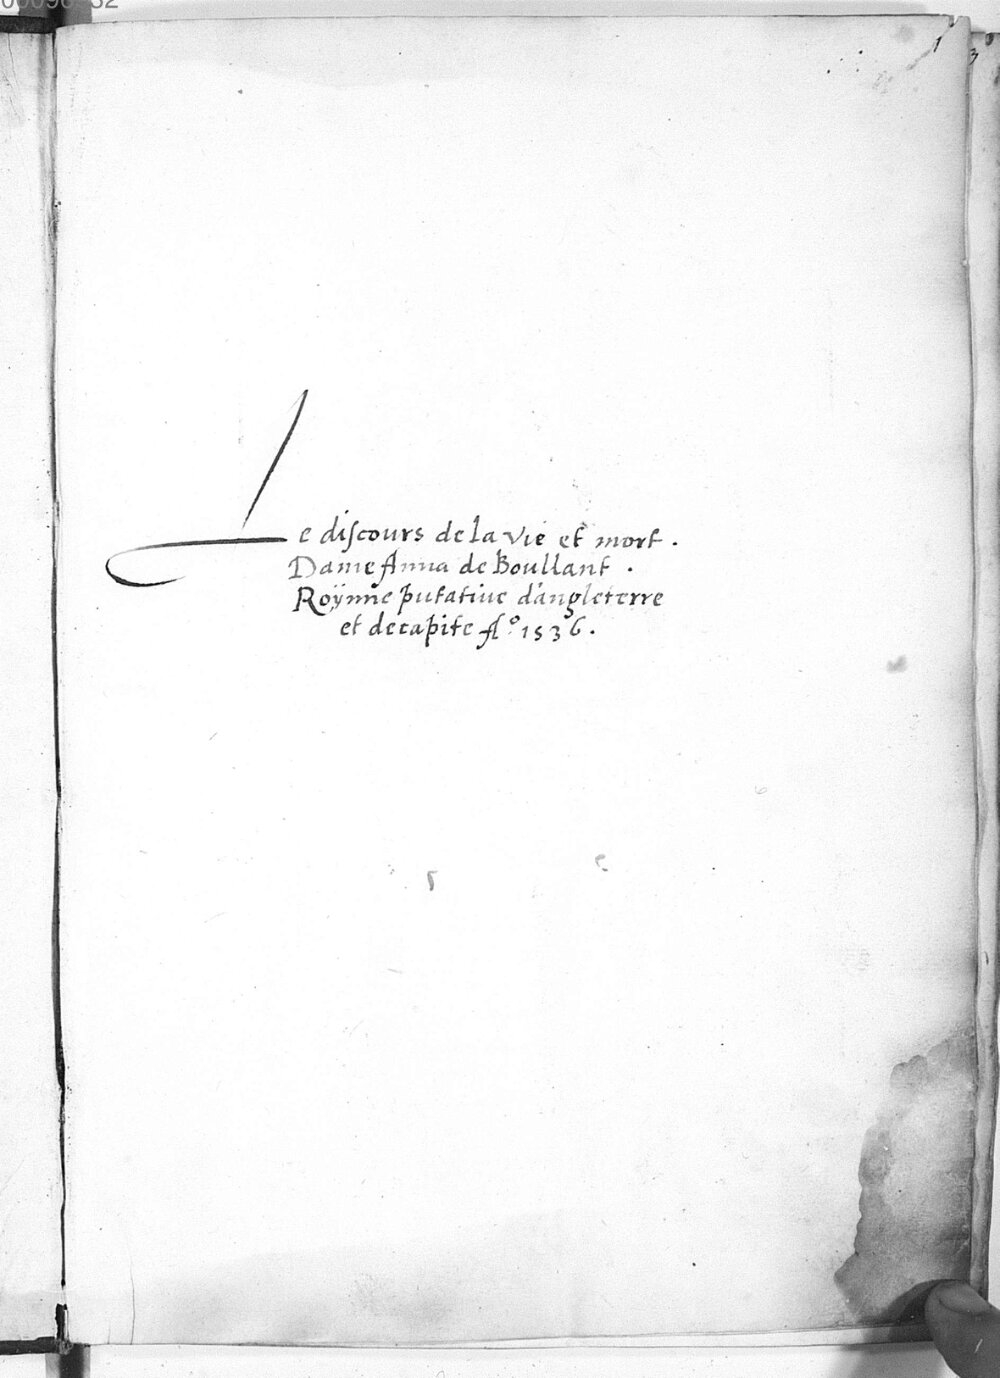 1
3
Le discours de la vie et mort.
Dame Anna de Boullant.
Roÿnne putative d'angleterre
et decapite Aº 1536.